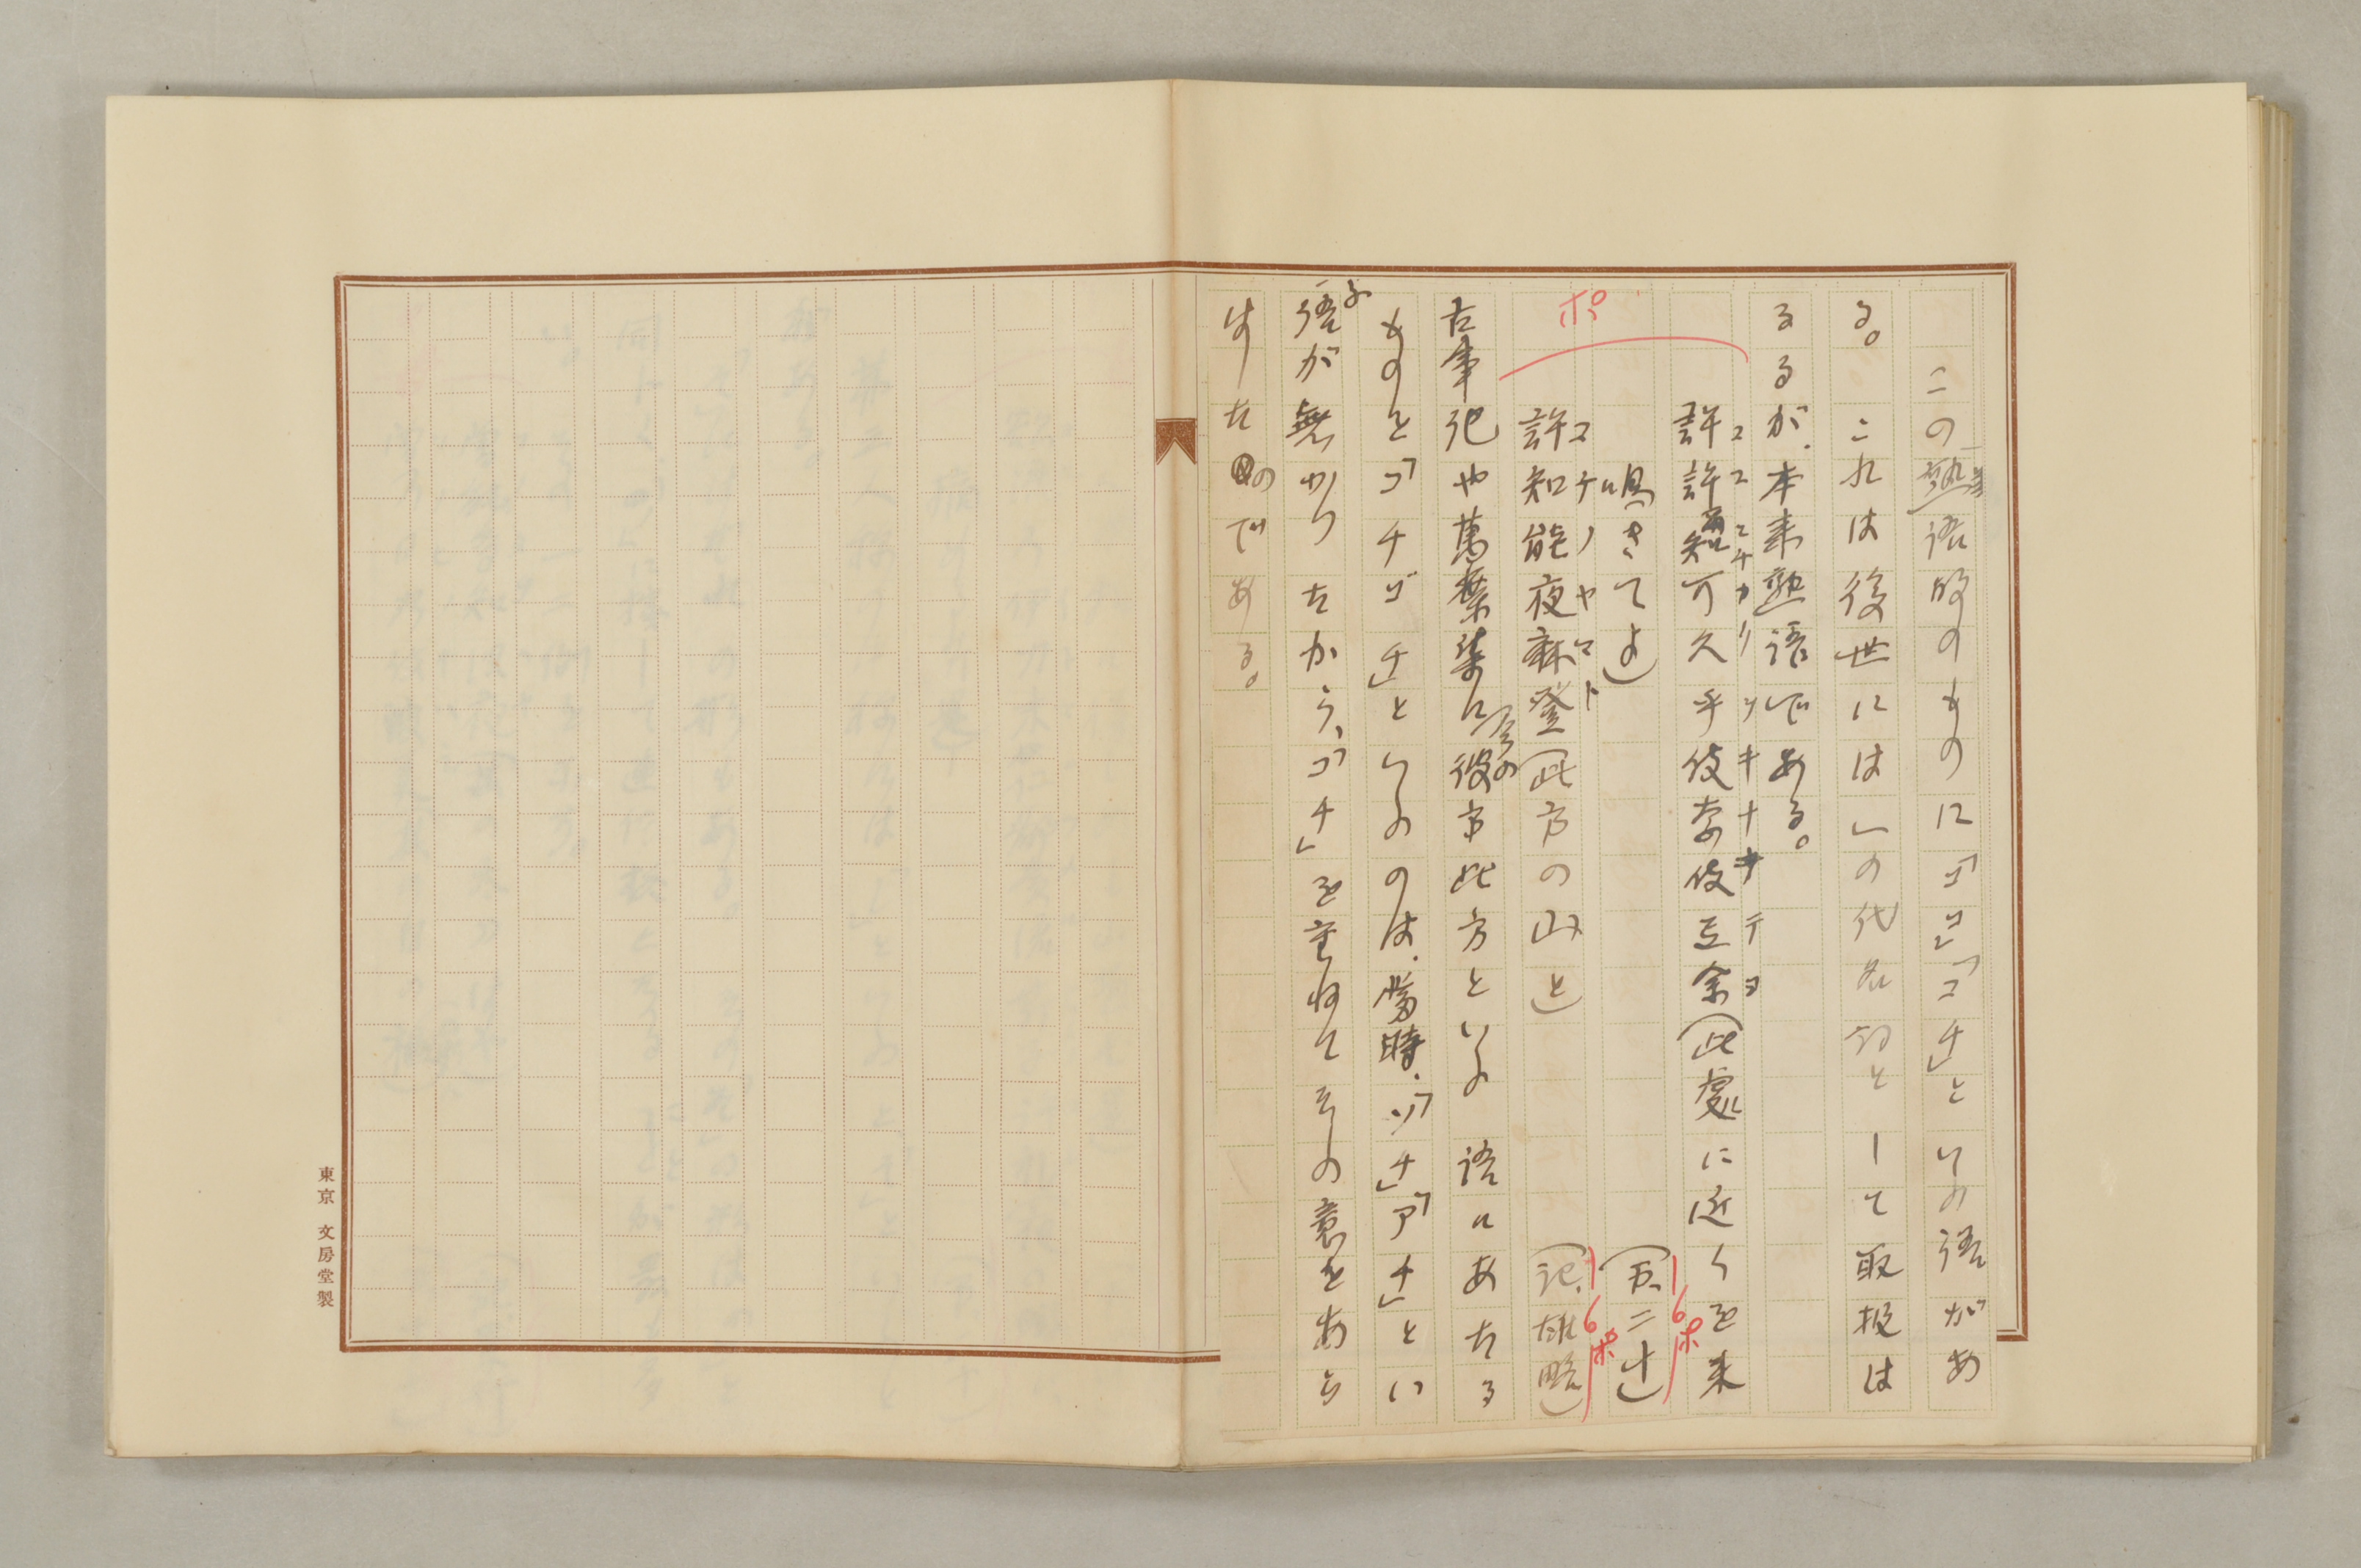 この熟語的のものに「ココ」「コチ」といふ語があ
る。これは後世には一の代名詞として取扱は
るるが、本来熟語である。
許許知可久乎伎奈伎互余(此處に近くを来
ココ コチカク ヲ キナキテヨ
鳴きてよ)(万、二十)
許知能夜麻登(此方の山と)(記、雄略)
コチノヤマト
ポ
6ポ
6ポ
古事記や萬葉集に彼方此方といふ語にあたる
ものを「コチゴチ」といふのは、當時、「ソチ」「アチ」とい
ふ語が無かつたから、「コチ」を重ねてその意をあら
はすたのである。
東京 文房堂製